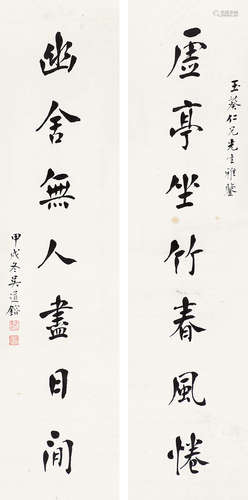 玉葵仁兄先生雅鑒
虛亭坐竹春風惓
幽舍無人盡日閒
甲戌冬吳道鎔